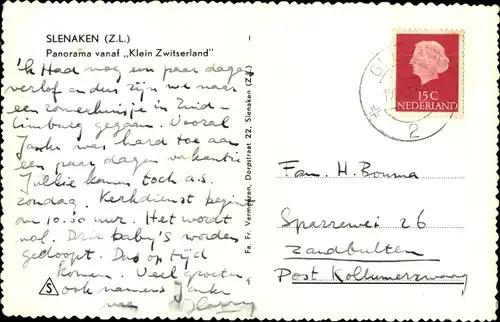 SLENAKEN (Z.L.)
Panorama vanaf „Klein Zwitserland"
'k Had nog een paar dagen
verlof en dus zijn we naar
een zomerhuisje in Zuid-
Limburg gegaan. Vooral
Janke was hard toe aan
een paar dagen vakantie
Jullie komen toch a.s.
zondag. Kerkdienst begint
om 10.30 uur. Het wordt
vol. Drie baby's worden
gedoopt. Dus op tijd
komen. Veel groeten,
ook namens Janke
Harry
S
Fa. Fr. Vermeeren, Dorpstraat 22, Slenaken (Z.L.)
15C
NEDERLAND
2
Fam. H. Bouma
Sparrewei 26
Zandbulten
Post Kollumerzwaag